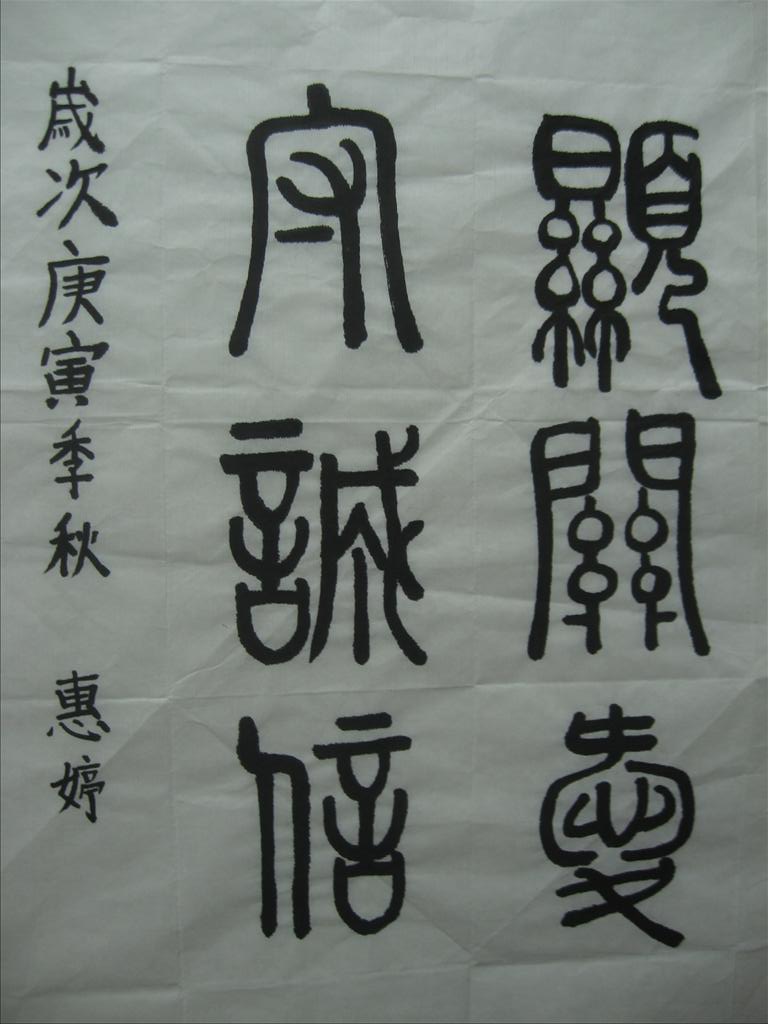 顯關愛
守誠信
歲次庚寅季秋 惠婷